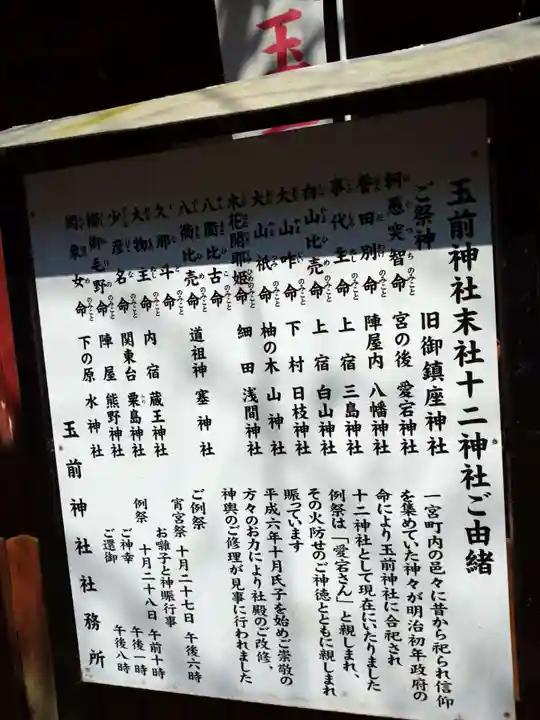 玉
玉前神社末社十二神社ご由緒
ご祭神 旧御鎮座神社
軻遇突智命 宮の後 愛宕神社
誉田別命 陣屋内 八幡神社
事代主命 上宿 三島神社
白山比売命 上宿 白山神社
大山咋命 下村 日枝神社
大山祇命 柚の木 山神社
木花開耶姫命 細田 浅間神社
八衢比古命
八衢比売命 道祖神 塞神社
久那斗命
大物主命 内宿 蔵王神社
少彦名命 関東台 粟島神社
櫛御毛野命 陣屋 熊野神社
罔象女命 下の原 水神社
一宮町内の邑々に昔から祀られ信仰
を集めていた神々が明治初年政府の
命により玉前神社に合祀され
十二神社として現在にいたりました
例祭は「愛宕さん」と親しまれ、
その火防せのご神徳とともに親しまれ
賑っています
平成六年十月氏子を始めご崇敬の
方々のお力により社殿のご改修、
神輿のご修理が見事に行われました
ご例祭
宵宮祭 十月二十七日 午後六時
お囃子と神賑行事
例祭 十月二十八日 午前十時
ご神幸 午後一時
ご還御 午後八時
玉前神社社務所